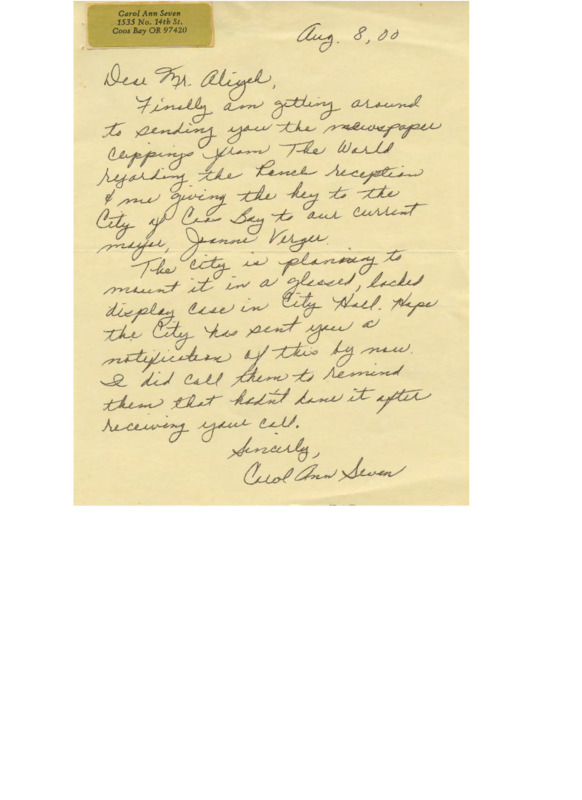 Carol Ann Seven
1535 No. 14th St.
Coos Bay OR 97420
Aug. 8, 00
Dear Mr.
Finally am getting around
to sending you the newspaper
clippings from The World
regarding the reception
& me giving the key to the
City of Coos Bay to our current
mayor, Joanne Verger.
The City is planning to
mount it in a glassed, locked
display case in City Hall. Hope
the City has sent you a
notification of this by now.
I did call them to remind
them that hadn't done it after
receiving your call.
Sincerly,
Carol Ann Seven